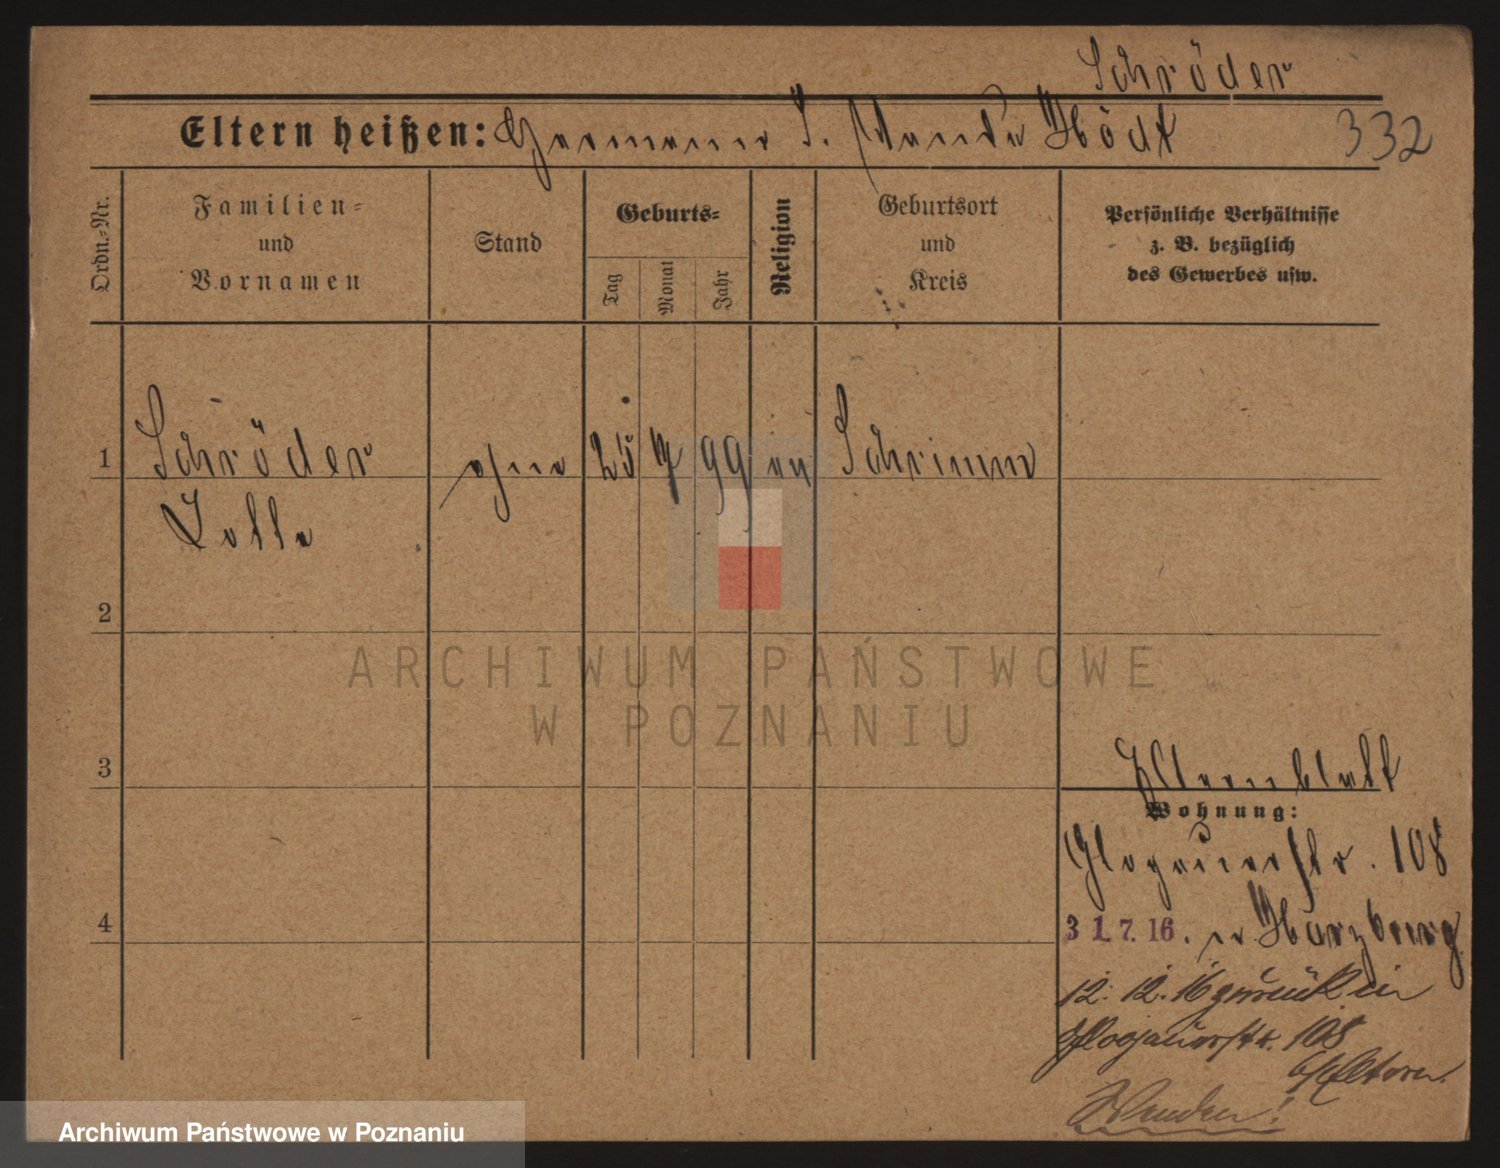 Schröder
Eltern heißen: Hermann S. Wanda Hödt 332
Ordn.-Nr.
Familien-
und
Vornamen
Stand
Geburts-
Tag
Monat
Jahr
Religion
Geburtsort
und
Kreis
Persönliche Verhältnisse
z. B. bezüglich
des Gewerbes usw.
1 Schröder ohne 25 7 99 Schrimm
Lotte
2
ARCHIWUM PAŃSTWOWE
W POZNANIU
3 Elternblatt
Wohnung:
Glogauerstr. 108
4 31.7.16. n. Harzburg
12. 12. 16 zurück in
Glogauerstr. 108
b/Eltern.
Wenden!
Archiwum Państwowe w Poznaniu